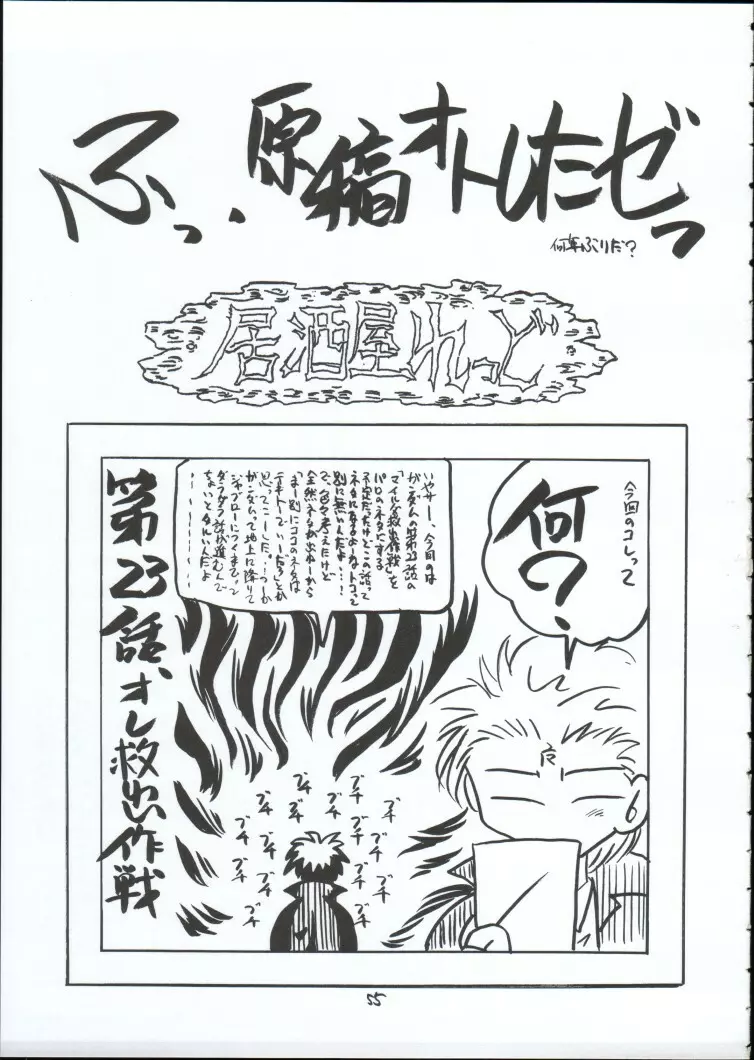 ふっ、原稿オトしたゼっ
何年ぶりだ?
居酒屋れっど
今回のコレって
何?
いやサー、今回のは
がンダムの第23話の
「マイルダ救出作戦」を
パロったネタにする
予定だったけどこの話って
ネタになるよーなトコって
別に無いんだよ・・・・
で、色々考えたけど
全然ネタが出ねーから
「まー別にココのネタは
テキトーでいーだろ」とか
思ってこーした。!つーか
ガンダムって地上に降りて
ジャブローにつくまでって
ダラダラ話が進むんで
ちょいとなんいんだよ
第23話、オレ救出作戦
ブチ ブチ ブチ ブチ
ブチ ブチ ブチ ブチ
ブチ ブチ ブチ ブチ
ブチ ブチ ブチ ブチ
55